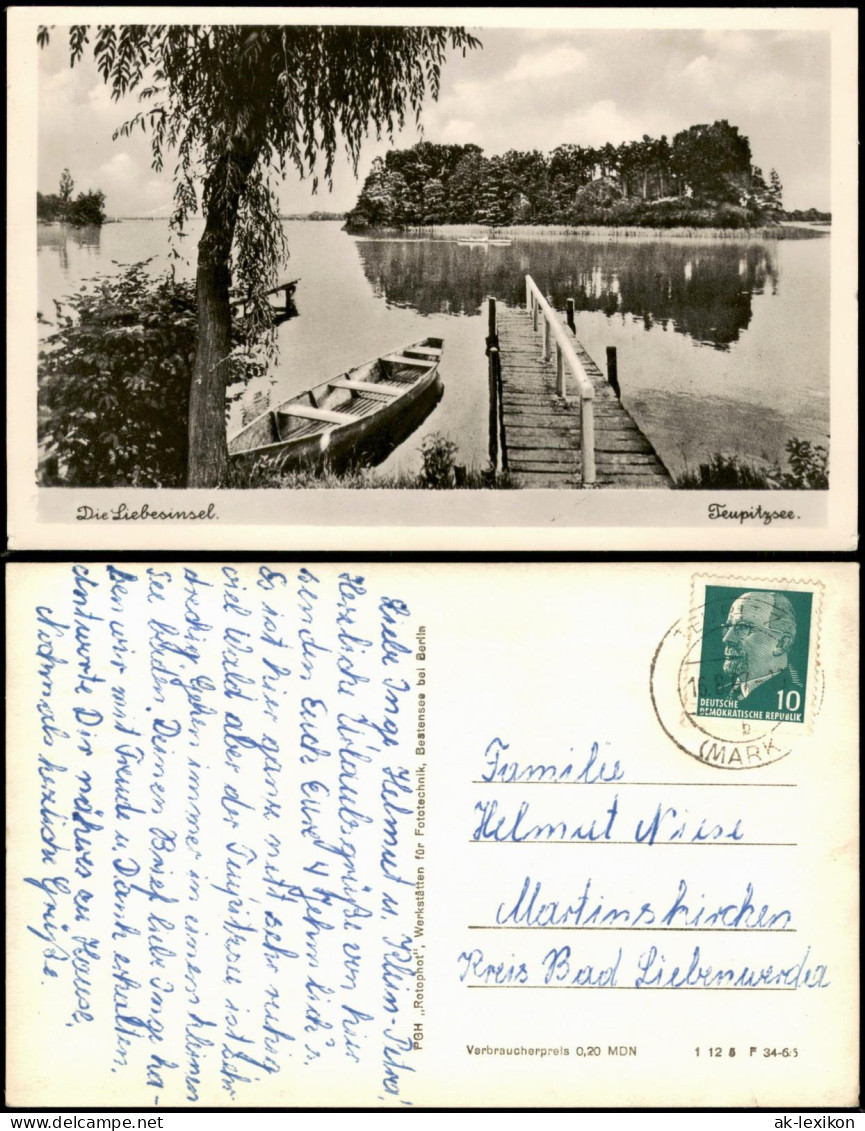 Die Liebesinsel.
Teupitzsee.
Liebe Inge Helmut u. Klein-Petra!
Herzliche Urlaubsgrüße von hier
senden Euch Eure 4 Jehmlich's.
Es ist hier ganz nett sehr ruhig
viel Wald aber der Teupitzsee ist sehr
dreckig. Gehen immer in einen kleinen
See baden. Deinen Brief liebe Inge ha-
ben wir mit Freude u. Dank erhalten.
Antworte Dir näheres zu Hause.
Nochmals herzliche Grüße.
PGH „Rotophot", Werkstätten für Fototechnik, Bestensee bei Berlin
10
DEUTSCHE
DEMOKRATISCHE REPUBLIK
b
(MARK
Familie
Helmut Niese
Martinskirchen
Kreis Bad Liebenwerda
Verbraucherpreis 0,20 MDN 1 12 5 F 34-65
ak-lexikon